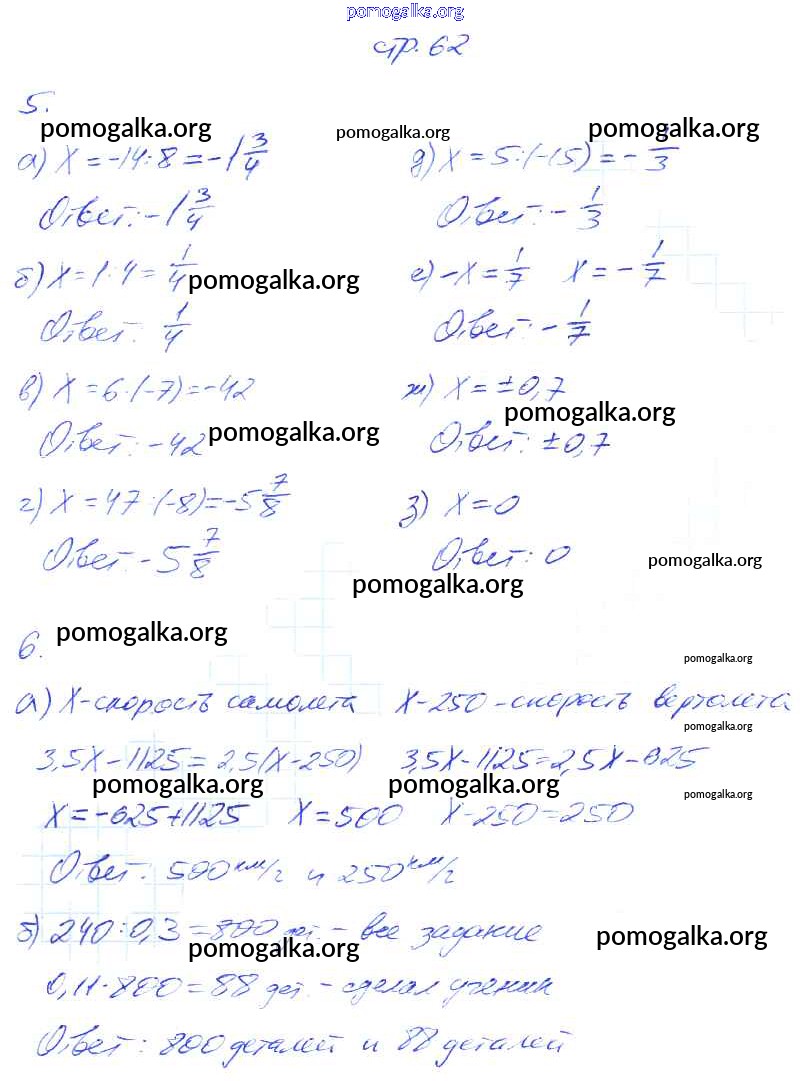 pomogalka.org
стр. 62
5.
pomogalka.org pomogalka.org pomogalka.org
а) X = -14:8 = -1 3/4
Ответ: -1 3/4
б) X = 1:4 = 1/4 pomogalka.org
Ответ: 1/4
в) X = 6·(-7) = -42
Ответ: -42 pomogalka.org
г) X = 47:(-8) = -5 7/8
Ответ: -5 7/8
д) X = 5:(-15) = - 1/3
Ответ: - 1/3
е) -X = 1/7 X = - 1/7
Ответ: - 1/7
ж) X = ±0,7
pomogalka.org
Ответ: ±0,7
з) X = 0
Ответ: 0 pomogalka.org
pomogalka.org
6. pomogalka.org
pomogalka.org
а) X-скорость самолета X-250 - скорость вертолета
pomogalka.org
3,5X-1125 = 2,5(X-250) 3,5X-1125=2,5X-625
pomogalka.org pomogalka.org pomogalka.org
X = -625+1125 X = 500 X-250=250
Ответ: 500 км/г и 250 км/г
б) 240:0,3 = 800 дет. - все задание
pomogalka.org pomogalka.org
0,11·800 = 88 дет. - сделал ученик
Ответ: 800 деталей и 88 деталей